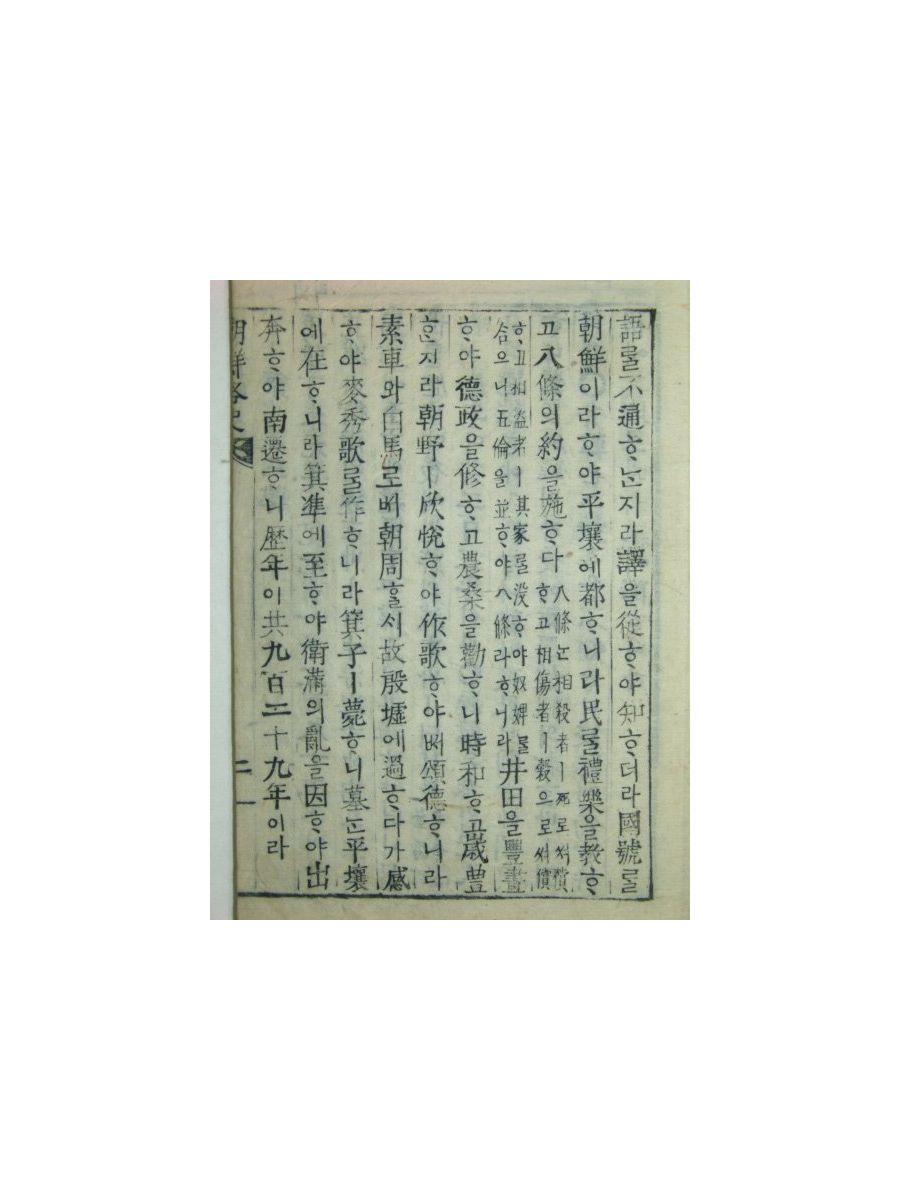 語ᄅᆞᆯ不通ᄒᆞᄂᆞᆫ지라譯을從ᄒᆞ야知ᄒᆞ더라國號ᄅᆞᆯ
朝鮮이라ᄒᆞ야平壤에都ᄒᆞ니라民ᄅᆞᆯ禮樂을敎ᄒᆞ
고八條의約을施ᄒᆞ다
八條ᄂᆞᆫ相殺者ㅣ死로ᄡᅥ償
ᄒᆞ고相傷者ㅣ穀으로ᄡᅥ償
ᄒᆞ고相盜者ㅣ其家ᄅᆞᆯ沒ᄒᆞ야奴婢ᄅᆞᆯ
合으니五倫을並ᄒᆞ야八條라ᄒᆞ니라
井田을豐畫
ᄒᆞ야德政을修ᄒᆞ고農桑을勸ᄒᆞ니時和ᄒᆞ고歲豊
ᄒᆞᆫ지라朝野ㅣ欣悅ᄒᆞ야作歌ᄒᆞ야ᄡᅥ頌德ᄒᆞ니라
素車와白馬로ᄡᅥ朝周ᄒᆞᆯᄉᆡ故殷墟에過ᄒᆞ다가感
ᄒᆞ야麥秀歌ᄅᆞᆯ作ᄒᆞ니라箕子ㅣ薨ᄒᆞ니墓ᄂᆞᆫ平壤
에在ᄒᆞ니라箕準에至ᄒᆞ야衛滿의亂을因ᄒᆞ야出
奔ᄒᆞ야南遷ᄒᆞ니歷年이共九百二十九年이라
朝鮮略史 二